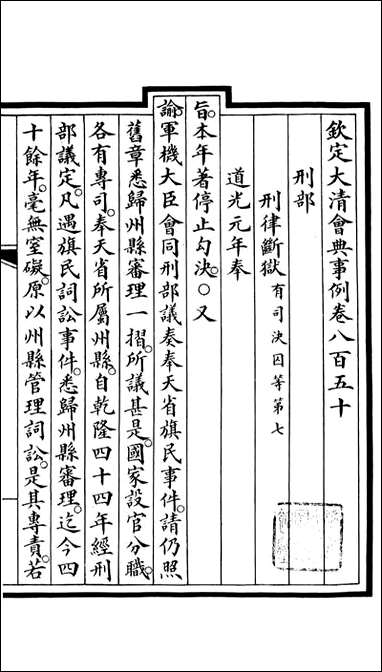 欽定大清會典事例卷八百五十
刑部
刑律斷獄有司決囚等第七
道光元年奉
旨。本年著停止勾決。○又
諭。軍機大臣會同刑部議奏奉天省旗民事件。請仍照
舊章悉歸州縣審理一摺。所議甚是。國家設官分職。
各有專司。奉天省所屬州縣。自乾隆四十四年經刑
部議定。凡遇旗民詞訟事件。悉歸州縣審理。迄今四
十餘年。毫無窒礙。原以州縣管理詞訟。是其專責。若